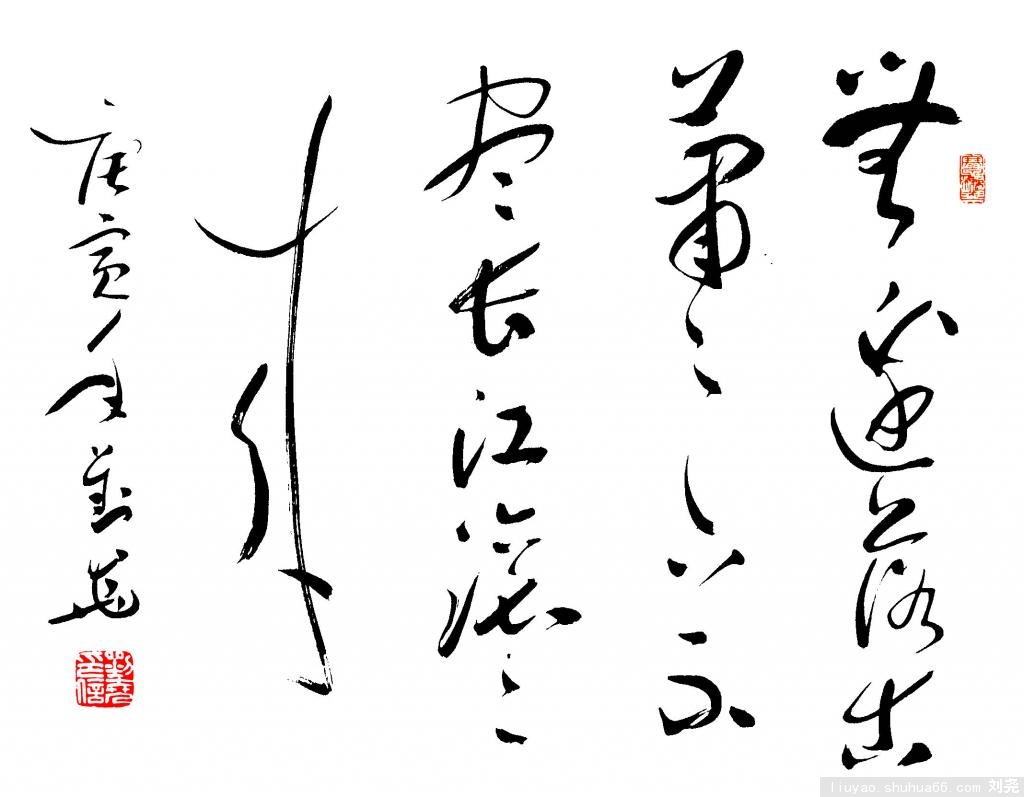 無邊落木
蕭蕭下不
盡長江滾滾
來
庚寅年劉堯
liuyao.shuhua66.com 刘尧